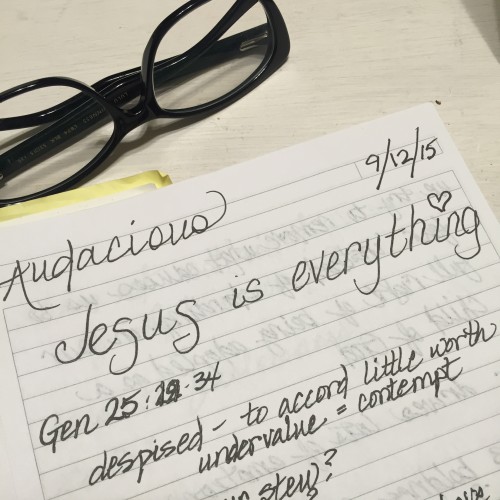 9/12/15
Audacious
Jesus is everything
Gen 25:29-34
despised - to accord little worth
undervalue = contempt
stew?